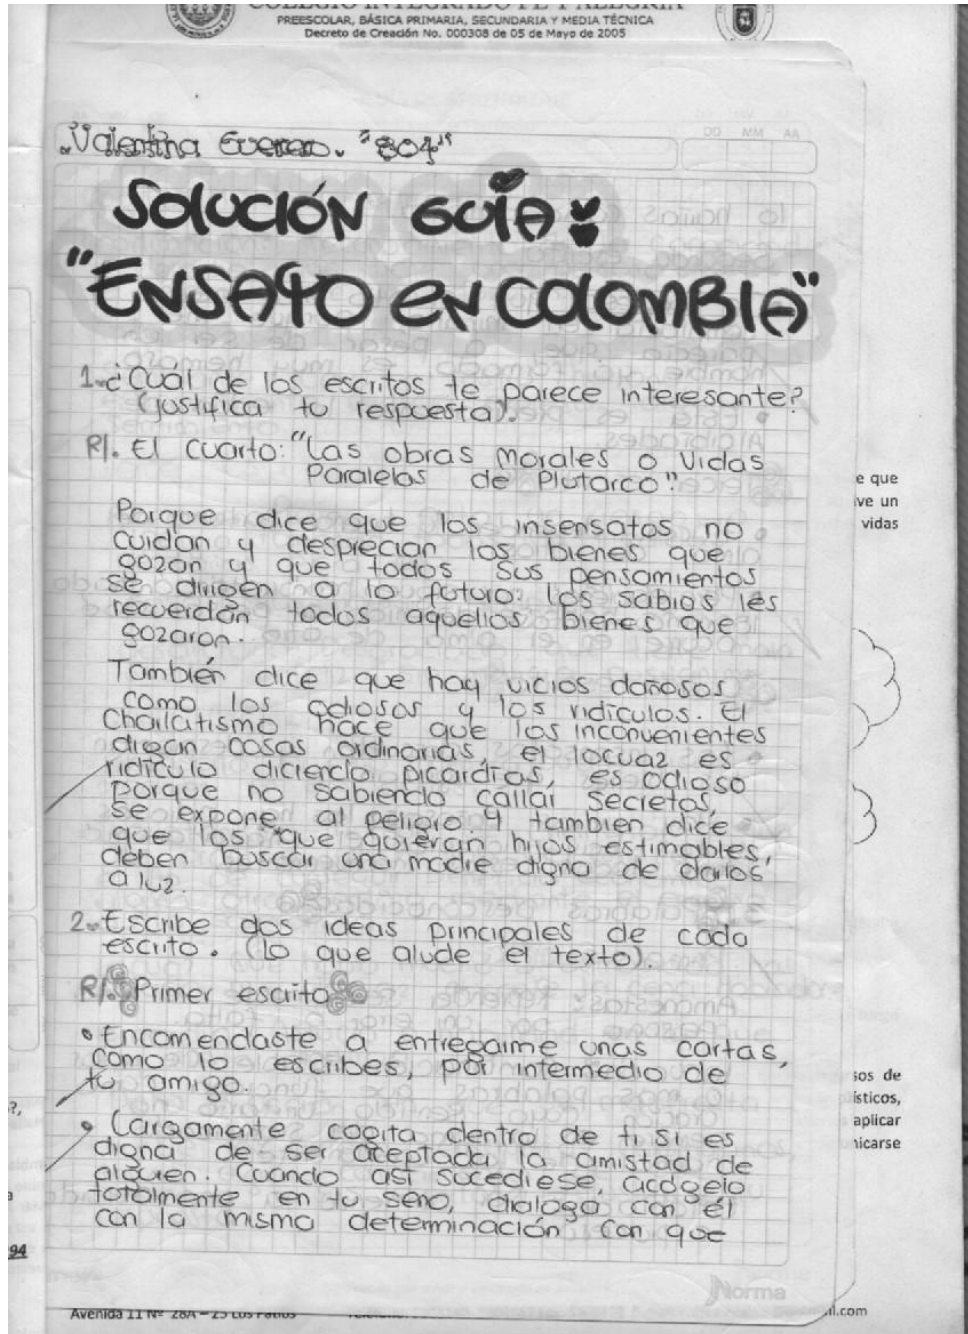 COLEGIO INTEGRADO FE Y ALEGRIA
PREESCOLAR, BÁSICA PRIMARIA, SECUNDARIA Y MEDIA TÉCNICA
Decreto de Creación No. 000308 de 05 de Mayo de 2005
DD MM AA
Valentina "804"
SOlUCIÓN GUÍA:
"ENSAYO EN COlOMBIA"
1. ¿Cuál de los escritos te parece interesante?
(justifica tu respuesta).
R/. El cuarto: "Las obras Morales o Vidas
Paralelas de Plutarco".
Porque dice que los insensatos no
cuidan y desprecian los bienes que
gozan y que todos sus pensamientos
se dirigen a lo futuro: los sabios les
recuerdan todos aquellos bienes que
gozaron.
También dice que hay vicios dañosos
como los odiosos y los ridículos. El
Charlatismo hace que los inconvenientes
digan cosas ordinarias, el locuaz es
ridículo diciendo picardías, es odioso
porque no sabiendo callar secretos,
se expone al peligro. y tambien dice
que los que quieran hijos estimables,
deben buscar una madre digna de darlos
a luz.
2. Escribe dos ideas principales de cada
escrito. (lo que alude el texto).
R/. Primer escrito
• Encomendaste a entregarme unas cartas,
como lo escribes, por intermedio de
tu amigo.
• Largamente cogita dentro de ti si es
digna de ser aceptada la amistad de
alguien. Cuando así sucediese, acógelo
totalmente en tu seno, dialoga con él
con la misma determinación con que
Norma
e que
ve un
vidas
sos de
ísticos,
aplicar
nicarse
?,
94
Avenida 11 Nº 28A – 25 Los Patios
il.com